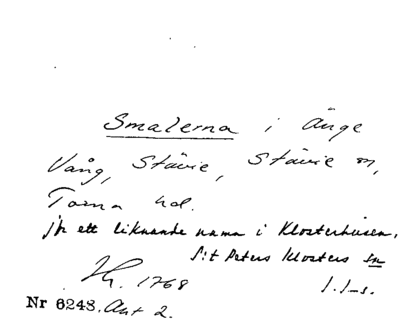 Smalerna i Änge
Vång, Stävie, Stävie sn,
Torna hd.
jfr ett liknande namn i Klosterhusen,
S:t Peters Klosters sn
1768
Nr 6243. Akt 2.